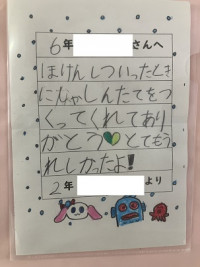 6年 さんへ
ほけんしついったとき
になゃしんたてをつ
くってくれてあり
がとう とてもう
れしかったよ!
2年 より